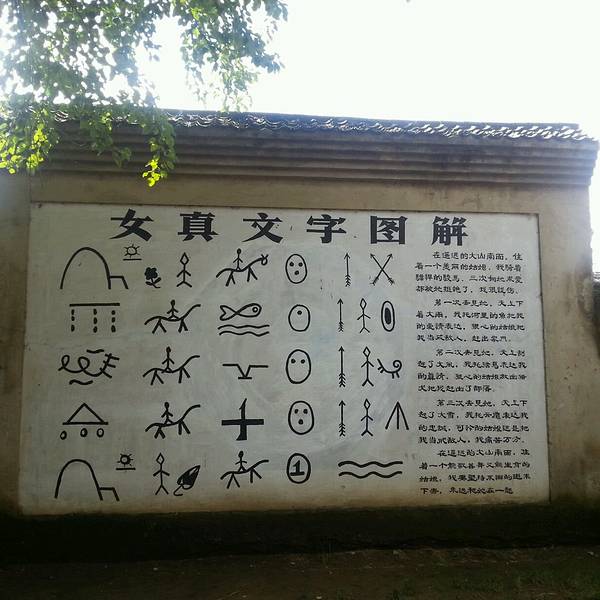 女真文字图解
在遥远的大山南面，住
着一个美丽的姑娘，我骑着
膘悍的骏马，三次向她求爱
都被她拒绝了，我很忧伤。
第一次去见她，天上下
着大雨，我托河里的鱼把我
的爱情表达，狠心的姑娘把
我当成敌人，赶出家门。
第二次去见她，天上刮
起了大风，我托 表达我
的真情，狠心的姑娘放出猎
犬把我赶出了部落。
第三次去见她，天上下
起了大雪，我托 表达我
的忠诚，可 的姑娘还是把
我当成敌人，我痛苦万分。
在遥远的大山南面，住
着一个能歌善舞又能生育的
姑娘，我要 不断的追求
下去，永远和她在一起
1